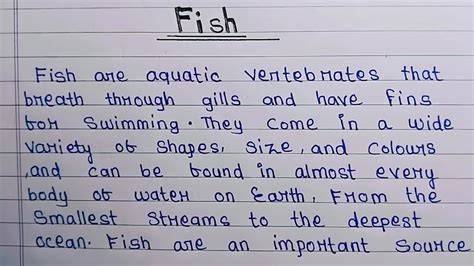 Fish
Fish are aquatic vertebrates that
breath through gills and have fins
for swimming. They come in a wide
variety of shapes, size, and colours
,and can be found in almost every
body of water on Earth, From the
Smallest Streams to the deepest
ocean. Fish are an important Source